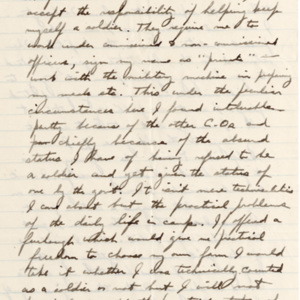 accept the responsibility of helping keep
myself a soldier. They require me to
work under commissioned & non-commissioned
officers, sign my name as "private" —
work with the military machine in
my meals etc. This under the peculiar
circumstances has I found intolerable —
partly because of the other C.O.s and
chiefly because of the absurd
status I have of being refused to be
a soldier and yet given the status of
one by the govt. It isn't mere technicalities
I care about but the practical problems
of the daily life in camp. If offered a
furlough which would give me practical
freedom to choose my own farm I would
take it whether I was technically counted
as a soldier or not but I will not